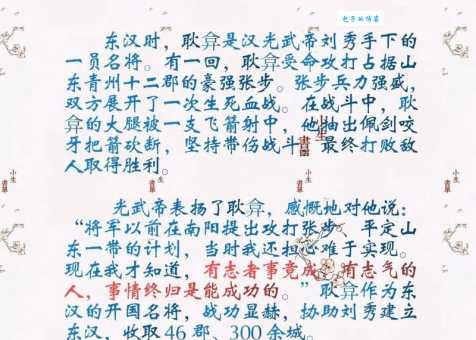 包子的博客
东汉时，耿弇是汉光武帝刘秀手下的
一员名将。有一回，耿弇受命攻打占据山
东青州十二郡的豪强张步。张步兵力强盛，
双方展开了一次生死血战。在战斗中，耿
弇的大腿被一支飞箭射中，他抽出佩剑咬
牙把箭砍断，坚持带伤战斗，最终打败敌
人取得胜利。
光武帝表扬了耿弇，感慨地对他说：
“将军以前在南阳提出攻打张步、平定山
东一带的计划，当时我还担心难于实现。
现在我才知道，有志者事竟成，有志气的
人，事情终归是能成功的。”耿弇作为东
汉的开国名将，战功显赫，协助刘秀建立
东汉，收取46郡、300余城。